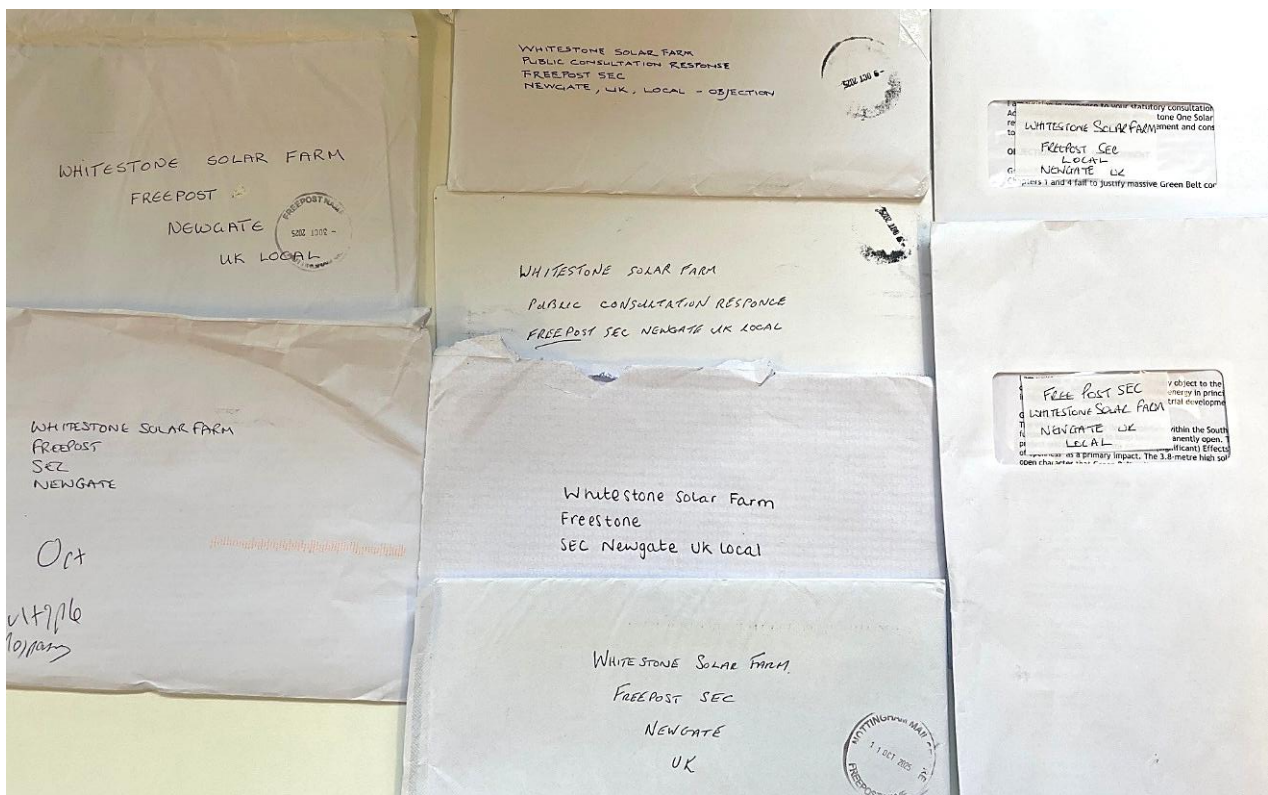 WHITESTONE SOLAR FARM
FREEPOST
NEWGATE
UK LOCAL
FREEPOST
OCT 2025
WHITESTONE SOLAR FARM
FREEPOST
SEC
NEWGATE
Oct
WHITESTONE SOLAR FARM
PUBLIC CONSULTATION RESPONSE
FREEPOST SEC
NEWGATE, UK, LOCAL - OBJECTION
-9 OCT 2025
WHITESTONE SOLAR FARM
PUBLIC CONSULTATION RESPONCE
FREEPOST SEC NEWGATE UK LOCAL
Whitestone Solar Farm
Freestone
SEC Newgate UK Local
WHITESTONE SOLAR FARM.
FREEPOST SEC
NEWGATE
UK
NOTTINGHAM MAIL
11 OCT 2025
FREEPOST
response to your statutory consultation
tone One Solar
WHITESTONE SOLAR FARM
FREEPOST SEC
LOCAL
NEWGATE UK
Chapters 1 and 4 fail to justify massive Green Belt
object to the
FREE POST SEC
energy in
WHITESTONE SOLAR FARM
NEWGATE UK
within the South
LOCAL
anently open.
Effects
as a primary impact. The 3.8-metre high
open character that Green